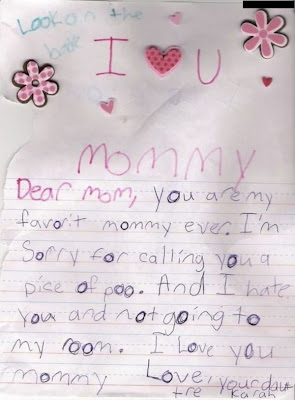 Look on the
back
I U
mommy
Dear mom, you are my
favorit mommy ever. I'm
Sorry for calling you a
pice of poo. And I hate
you and not going to
my room. I love you
mommy Love, your daut
tre Karah